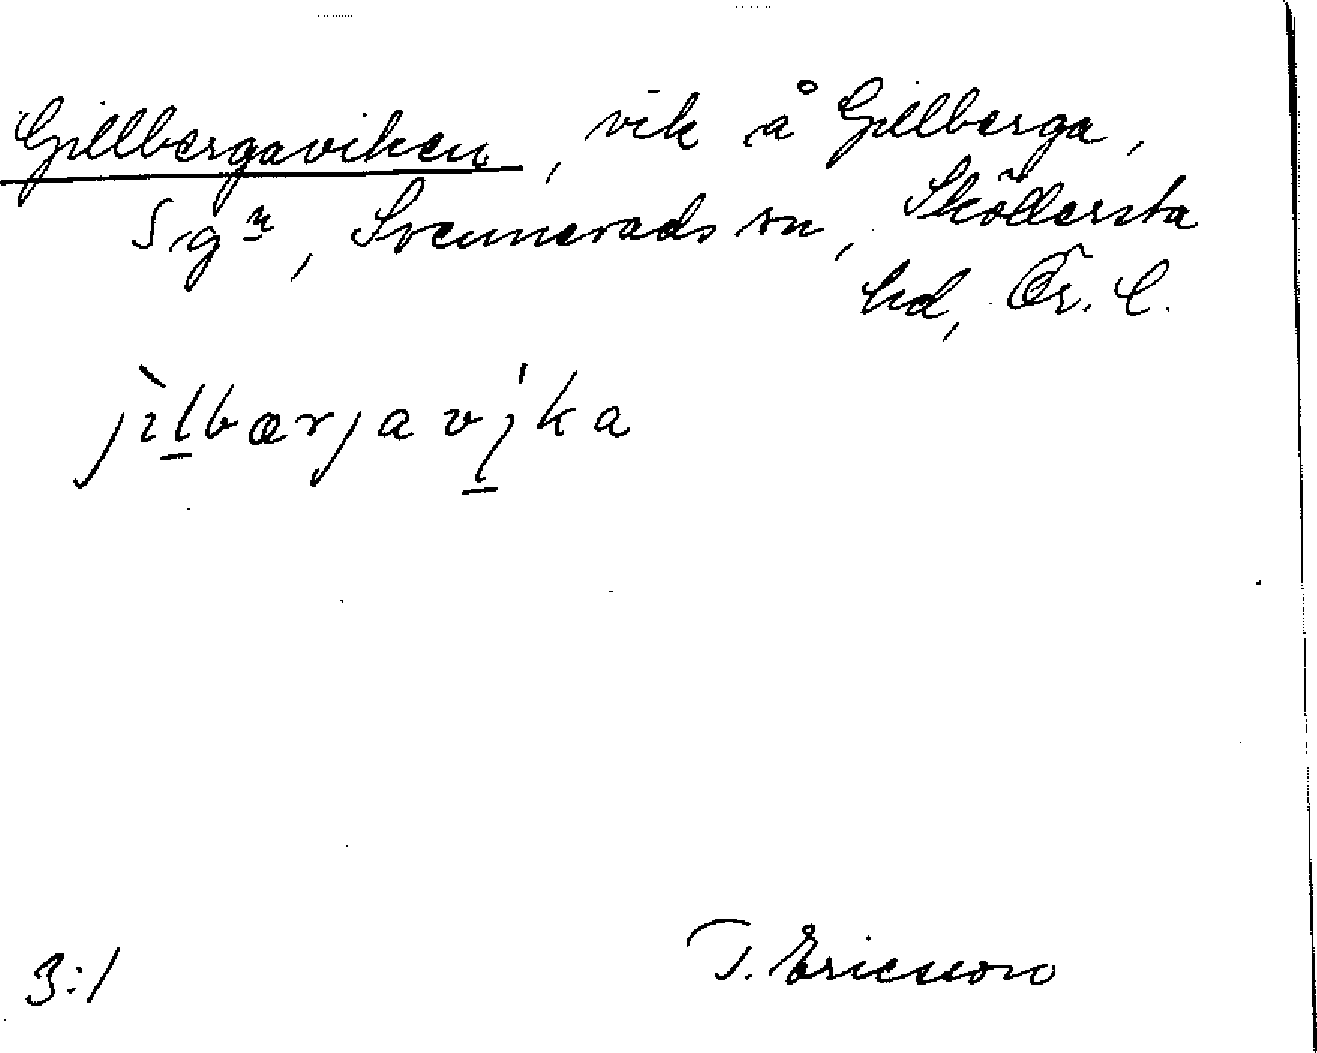 Gillbergaviken, vik å Gillberga,
Sgn, Svennevads sn, Sköllersta
hd, Ör. l.
jìlbærjavíka
3:1
T. Ericsson